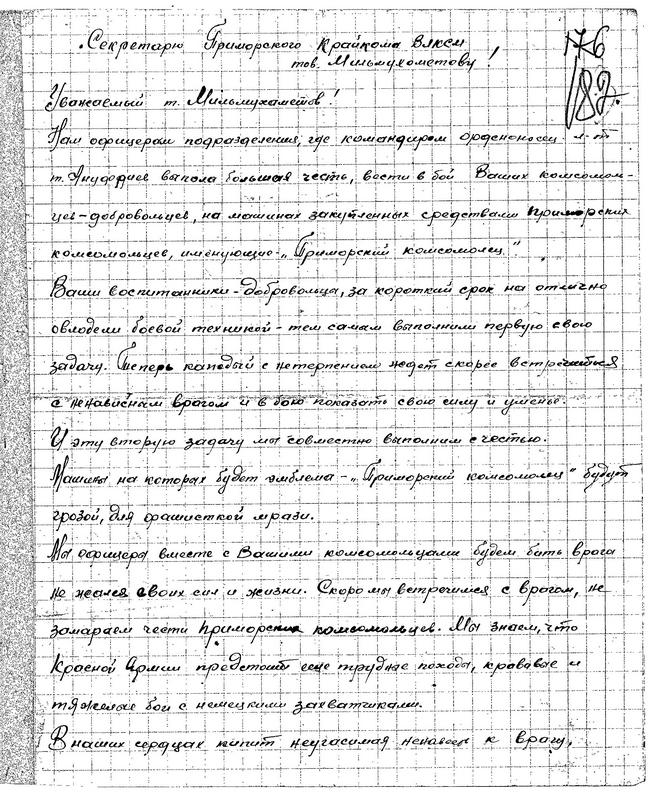 Секретарю Приморского Крайкома ВЛКСМ
тов. Мильмухометову!
176
187.
Уважаемый т. Мильмухаметов!
Нам офицерам подразделения, где командиром орденоносец л-т
т. Ануфриев выпола большая честь, вости в бой Ваших комсомол-
цев-добровольцев, на машинах закупленных средствами приморских
комсомольцев, именующие-„Приморский комсомолец"
Ваши воспитанники-добровольцы, за короткий срок на отлично
овлодели боевой техникой-тем самым выполнили первую свою
задачу. Теперь каждый с нетерпением ждет скорее встречаться
с ненависным врагом и в бою показать свою силу и уменье.
И эту вторую задачу мы совместно выполним с честью.
Машины на которых будет эмблема-„Приморский комсомолец" будут
грозой, для фашисткой мрази.
Мы офицеры вместе с Вашими комсомольцами будем бать врага
не жалея своих сил и жизни. Скоро мы встречимся с врагом, не
замараем чести приморских комсомольцев. Мы знаем, что
Красной Армии предстоит еще трудные походы, кравовые и
тяжелые бои с немецкими захватчиками.
В наших сердцах кипит неугасимая ненависть к врагу,